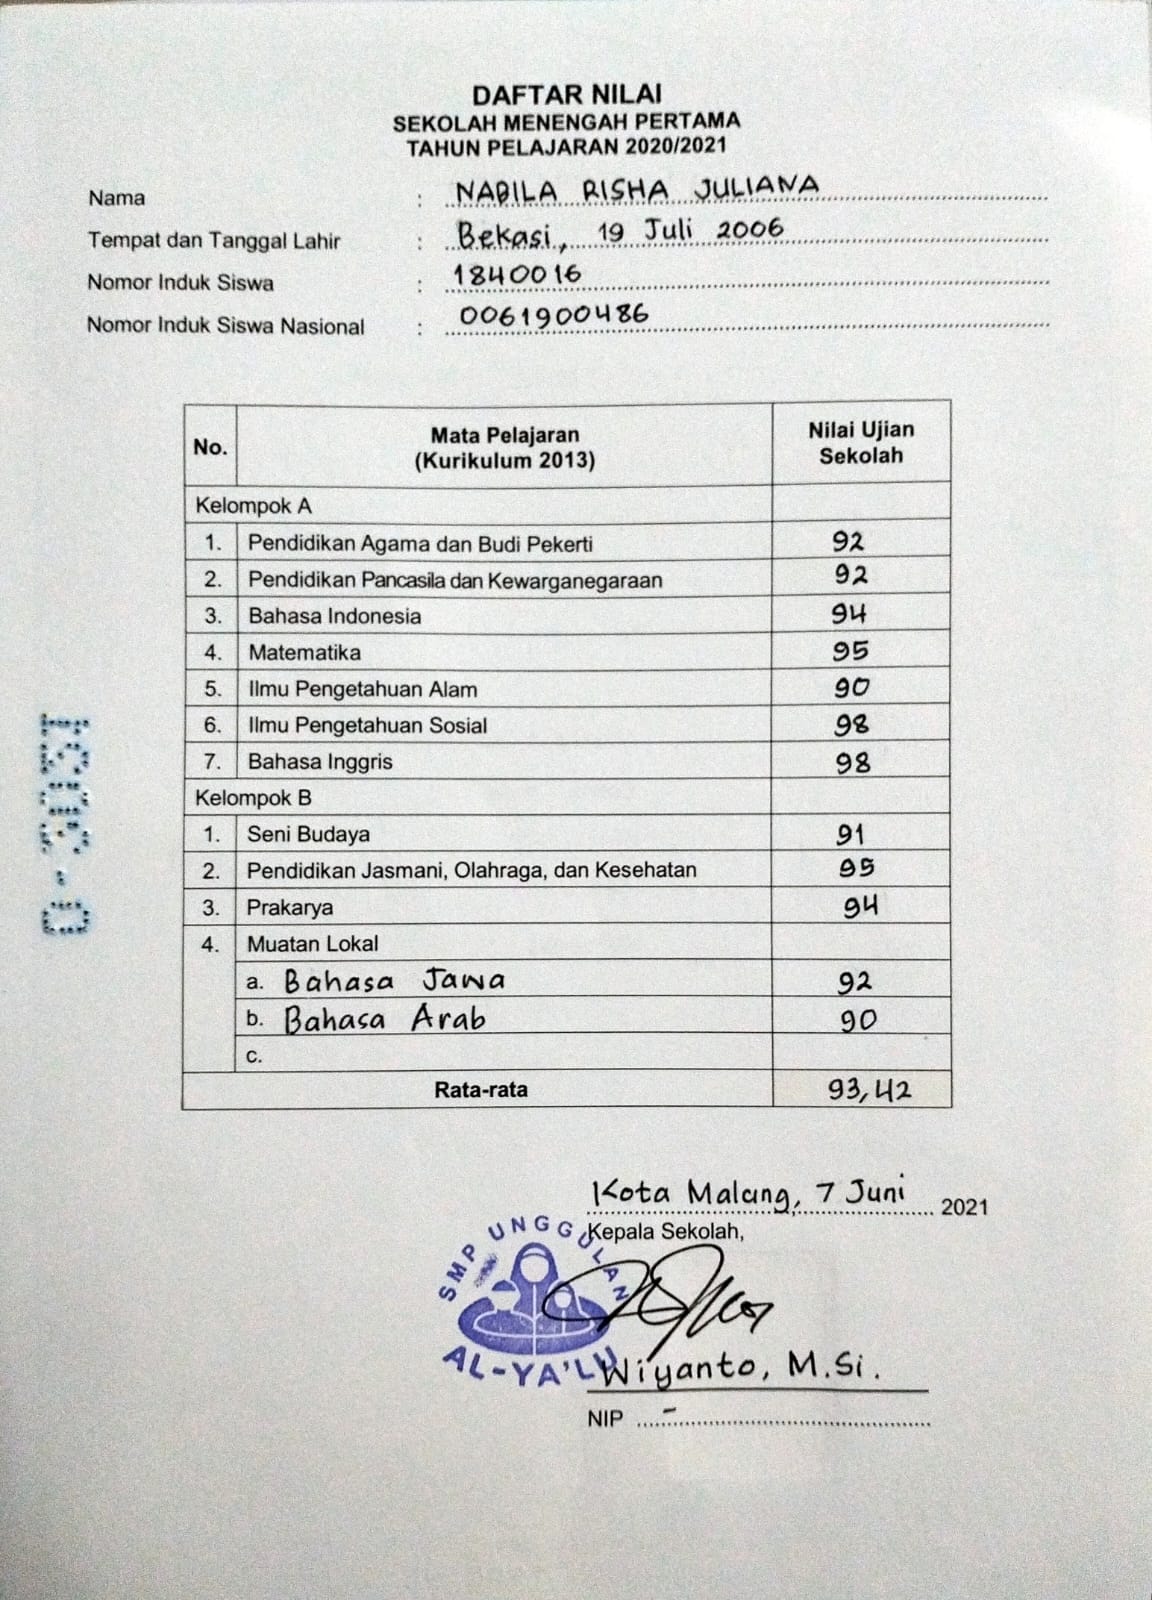 DAFTAR NILAI
SEKOLAH MENENGAH PERTAMA
TAHUN PELAJARAN 2020/2021
Nama : NABILA RISHA JULIANA
Tempat dan Tanggal Lahir : Bekasi, 19 Juli 2006
Nomor Induk Siswa : 1840016
Nomor Induk Siswa Nasional : 0061900486
No. Mata Pelajaran (Kurikulum 2013) Nilai Ujian Sekolah
Kelompok A
1. Pendidikan Agama dan Budi Pekerti 92
2. Pendidikan Pancasila dan Kewarganegaraan 92
3. Bahasa Indonesia 94
4. Matematika 95
5. Ilmu Pengetahuan Alam 90
6. Ilmu Pengetahuan Sosial 98
7. Bahasa Inggris 98
Kelompok B
1. Seni Budaya 91
2. Pendidikan Jasmani, Olahraga, dan Kesehatan 95
3. Prakarya 94
4. Muatan Lokal
a. Bahasa Jawa 92
b. Bahasa Arab 90
c.
Rata-rata 93,42
Kota Malang, 7 Juni 2021
Kepala Sekolah,
SMP UNGGULAN
AL-YA'LU
Wiyanto, M.Si.
NIP -
D-3051